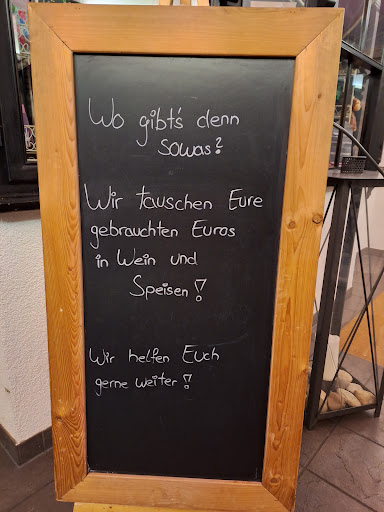 Wo gibt's denn
sowas?
Wir tauschen Eure
gebrauchten Euros
in Wein und
Speisen!
Wir helfen Euch
gerne weiter!